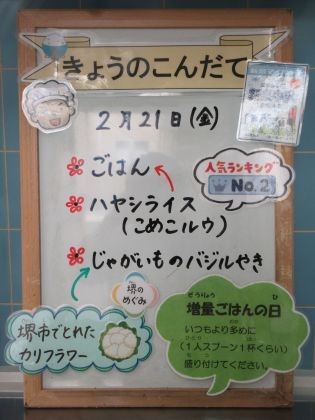 きょうのこんだて
2月21日(金)
ごはん
人気ランキング
No.2
ハヤシライス
(こめこルウ)
じゃがいものバジルやき
堺の
めぐみ
堺市でとれた
カリフラワー
ぞうりょう ひ
増量ごはんの日
いつもより多めに
(1人スプーン1杯くらい)
盛り付けてください。